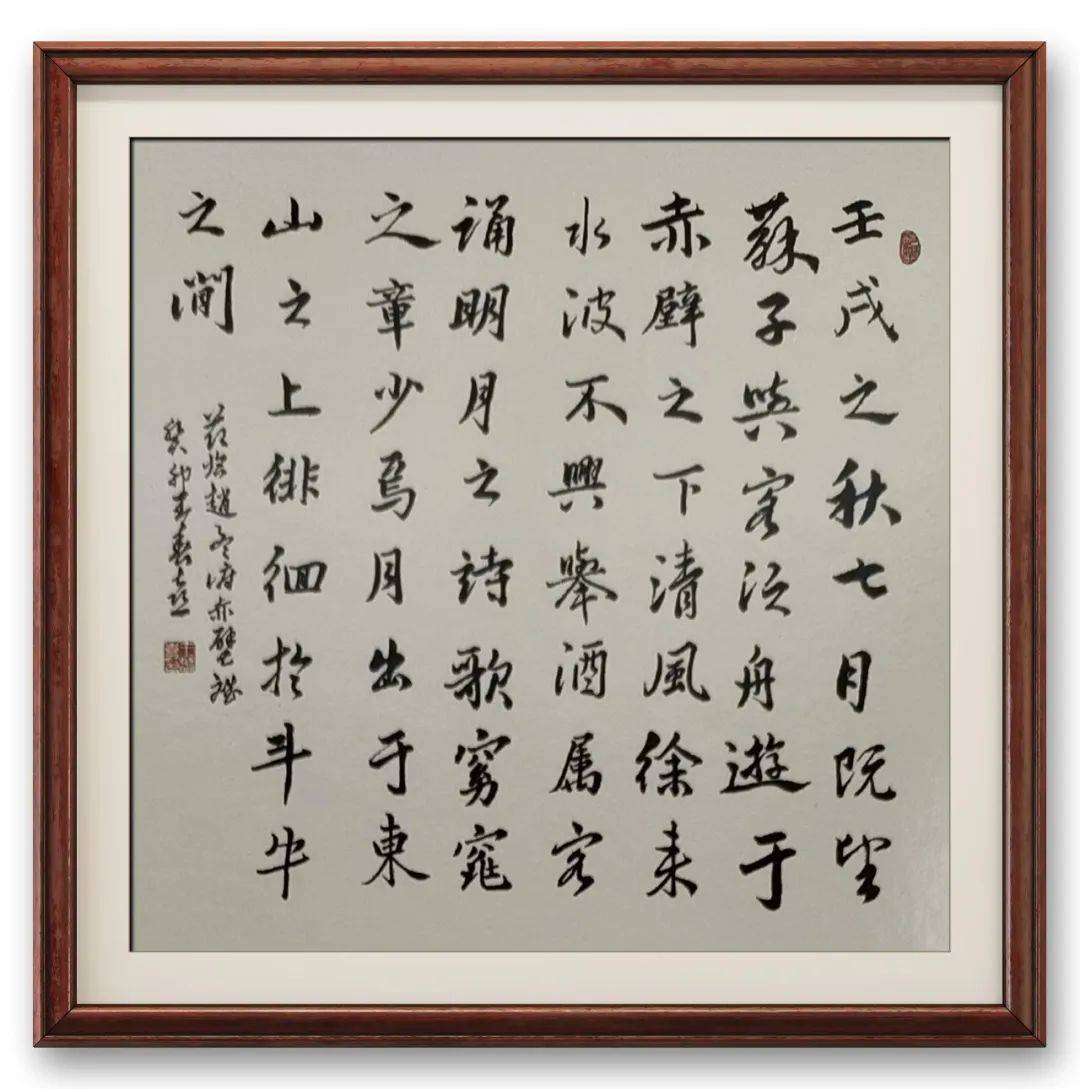 壬戌之秋七月既望
蘇子與客泛舟遊于
赤壁之下清風徐来
水波不興舉酒属客
誦明月之詩歌窈窕
之章少焉月出于東
山之上徘徊於斗牛
之澗
节临趙孟頫赤壁赋
癸卯